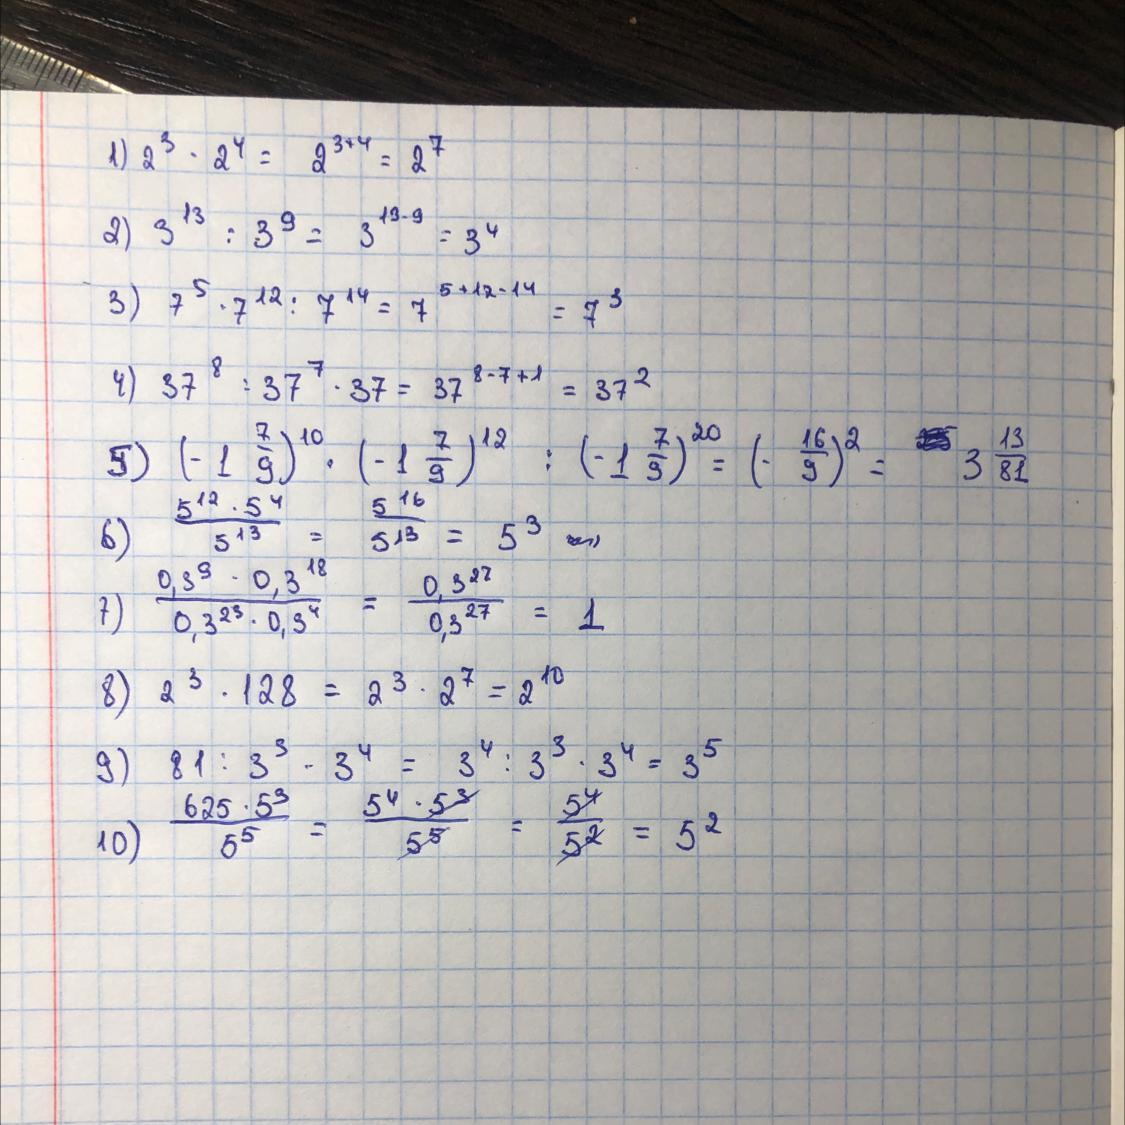 1) 2^3 · 2^4 = 2^{3+4} = 2^7
2) 3^{13} : 3^9 = 3^{13-9} = 3^4
3) 7^5 · 7^{12} : 7^{14} = 7^{5+12-14} = 7^3
4) 37^8 : 37^7 · 37 = 37^{8-7+1} = 37^2
5) (-1 7/9)^{10} · (-1 7/9)^{12} : (-1 7/9)^{20} = (- 16/9)^2 = 3 13/81
6) (5^{12} · 5^4)/5^{13} = 5^{16}/5^{13} = 5^3
7) (0,3^9 · 0,3^{18})/(0,3^{23} · 0,3^4) = 0,3^{27}/0,3^{27} = 1
8) 2^3 · 128 = 2^3 · 2^7 = 2^{10}
9) 81 : 3^3 · 3^4 = 3^4 : 3^3 · 3^4 = 3^5
10) (625 · 5^3)/5^5 = (5^4 · 5^3)/5^5 = 5^4/5^2 = 5^2